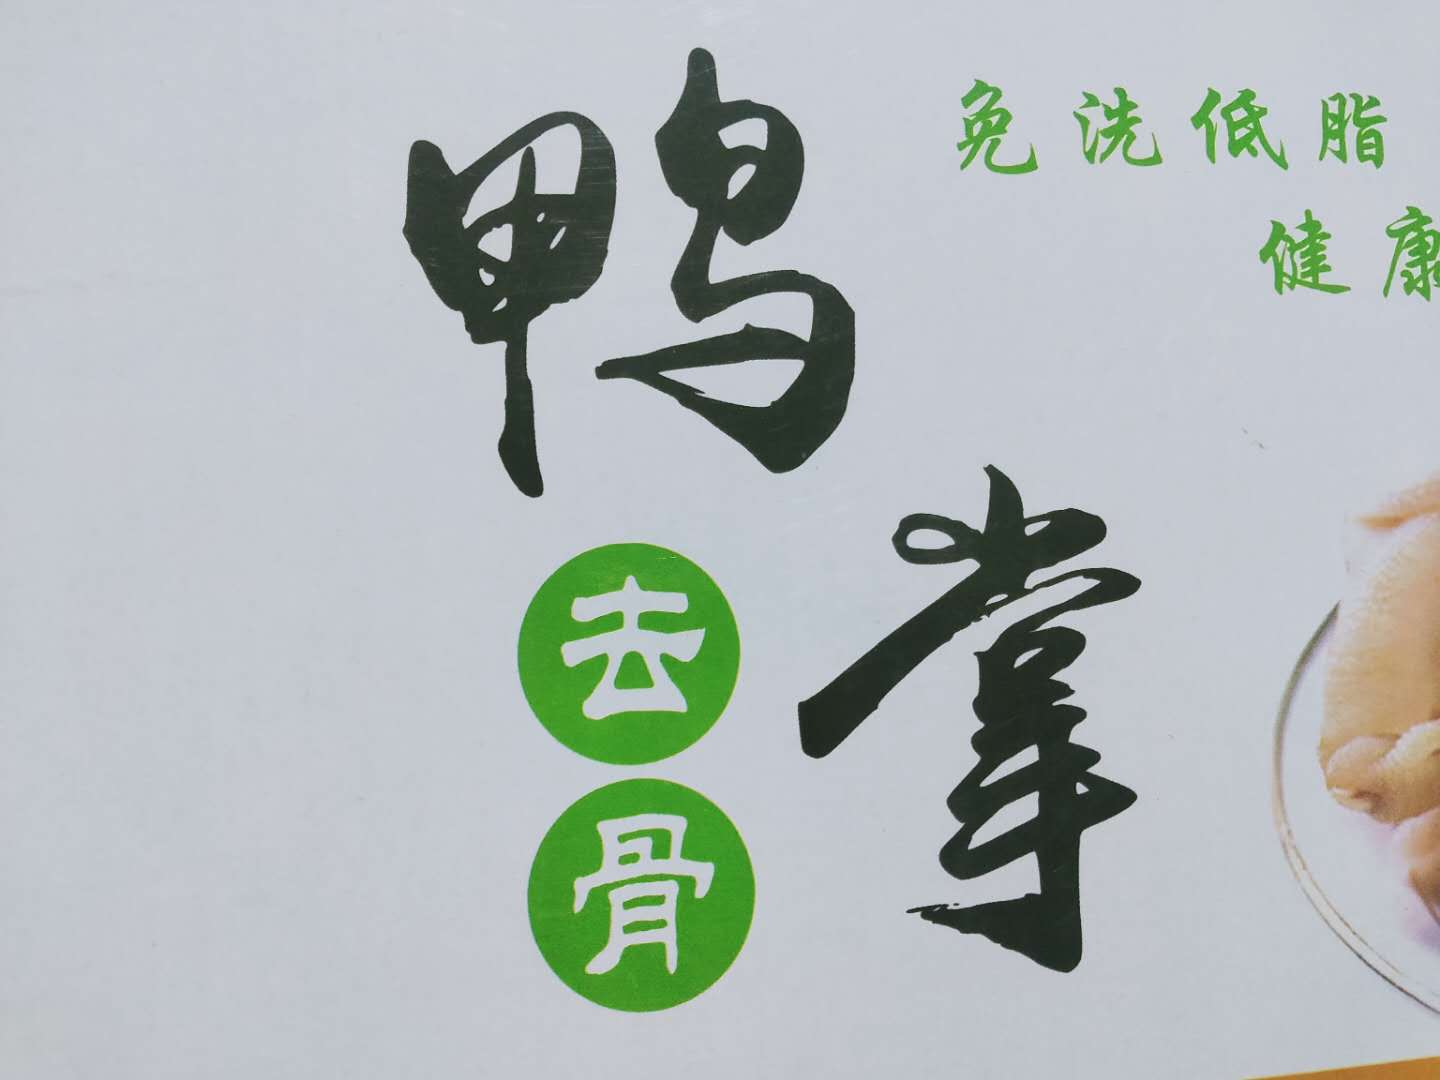 鸭掌
去骨
免洗低脂
健康